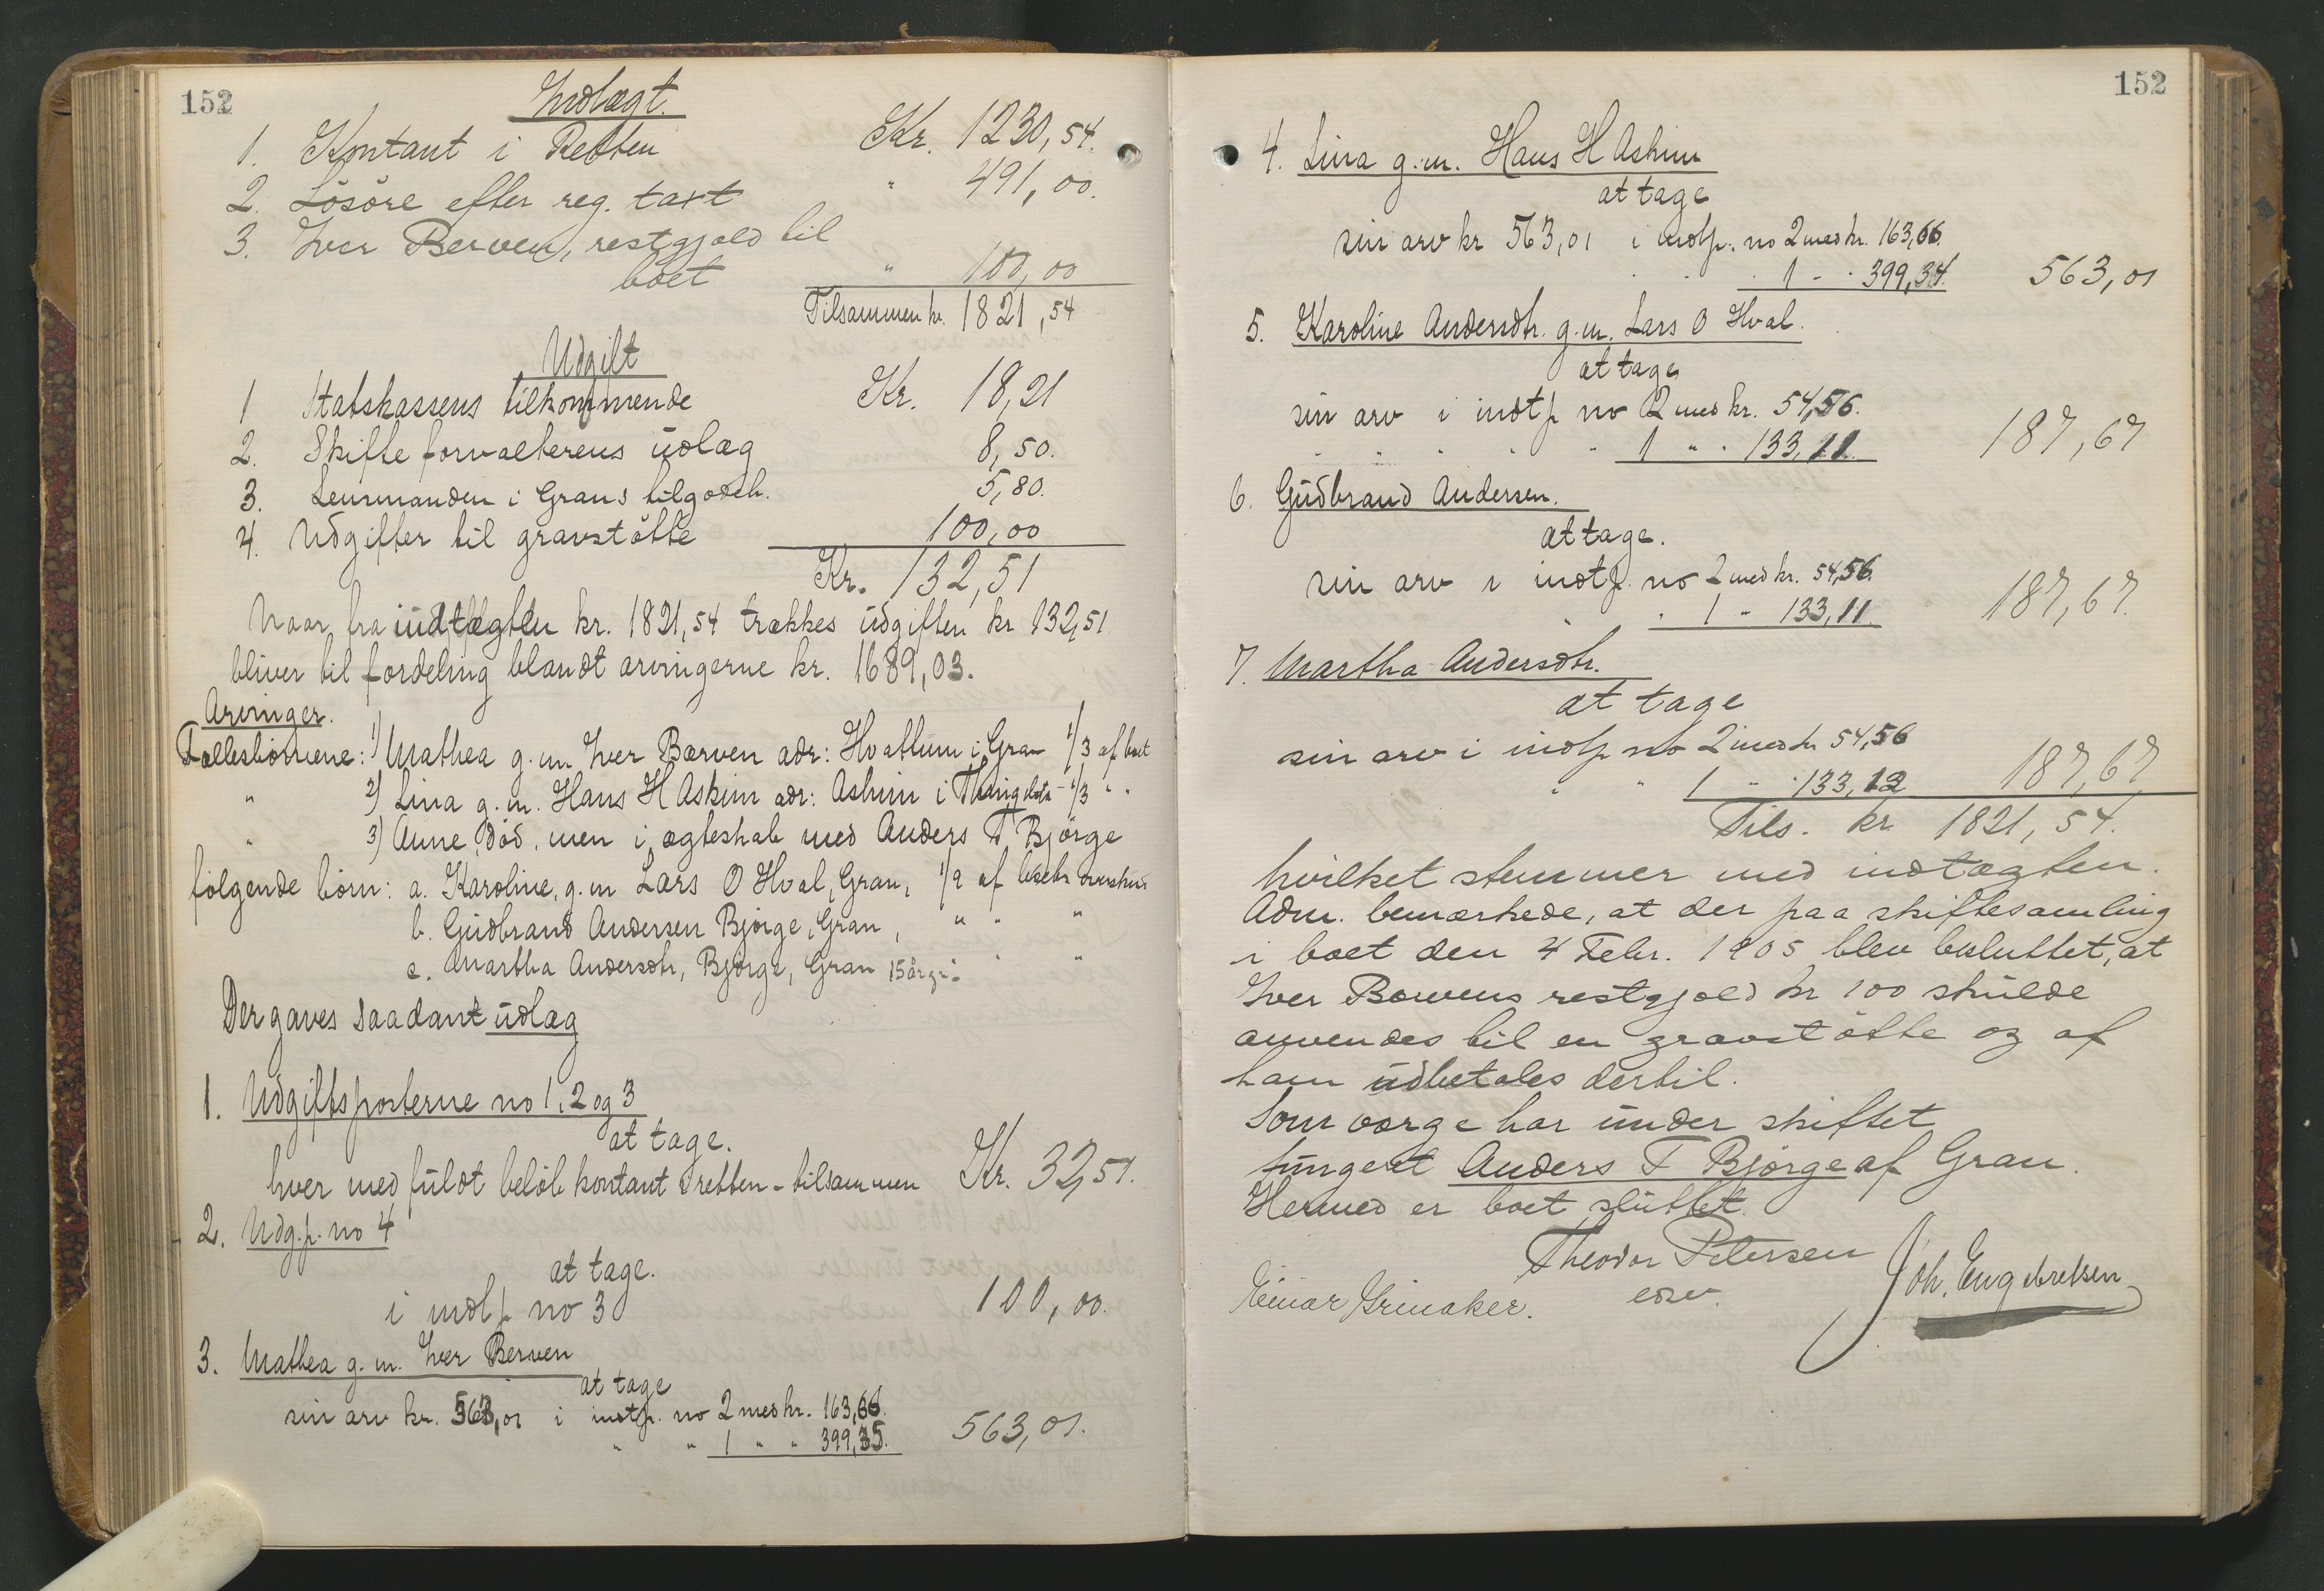 152
Indtægt.
1. Kontant i Retten Kr. 1230,54.
2. Lösöre efter reg. taxt " 491,00.
3. Iver Berven, restgjæld til
boet " 100,00
Tilsammen kr. 1821,54
Udgift
1 Statskassens tilkommende Kr. 18,21
2. Skifteforvalterens üdlæg 8,50.
3. Lensmanden i Grans tilgodeh. 5,80.
4. Udgifter til gravstötte 100,00
Kr. 132,51
Naar fra indtægten kr. 1821,54 trækkes üdgiften kr 132,51
bliver til fordeling blandt arvingerne kr. 1689,03.
Arvinger.
Fællesbörnene: 1) Mathea g.m Iver Bærven adr: Hvattum i Gran 1/3 af boet
" 2) Lina g.m. Hans H Askim adr: Askim i - 1/3 " "
" 3) Anne, död, men i ægteskab med Anders T Björge
fölgende börn: a. Karoline, g.m Lars O Hval, Gran, 1/9 af boets overskud
b. Güdbrand Andersen Björge, Gran, " " "
c. Martha Andersdtr, Björge, Gran 15 år gl. " "
Der gaves saadant üdlæg
1. Udgiftsposterne no 1, 2 og 3
at tage.
hver med füldt belöb kontant i retten - tilsammen Kr. 32,51.
2. Udg.p. no 4
at tage.
i indtp no 3 100,00.
3. Mathea g.m. Iver Berven
at tage
sin arv kr. 563,01 i indtp. no 2 med kr. 163,66.
" " 1 " " 399,35. 563,01.
152
4. Lina g.m. Hans H Askim
at tage
sin arv kr 563,01 i indtp. no 2 med kr. 163,66.
" " 1 - " 399,34. 563,01
5. Karoline Andersdtr. g.m. Lars O Hval.
at tage
sin arv i indtp no 2 med kr. 54,56.
" " " " " 1 " " 133,11. 187,67
6. Güdbrand Andersen.
at tage.
sin arv i indtp. no 2 med kr. 54,56.
" " 1 " 133,11. 187,67.
7. Martha Andersdtr.
at tage
sin arv i indtp no 2 med kr 54,56
" " 1 " " 133,12 187,67,
Tils. kr 1821,54.
hvilket stemmer med indtægten.
Adm. bemærkede, at der paa skiftesamling
i boet den 4 Febr. 1905 blev besluttet, at
Iver Bærvens restgjæld kr 100 skülde
anvendes til en gravstötte og af
ham üdbetales dertil.
Som værge har ünder skiftet
füngert Anders T Björge af Gran.
Hermed er boet slüttet.
Theodor Petersen
edsv.
Einar Grinaker.
Joh. Engebretsen